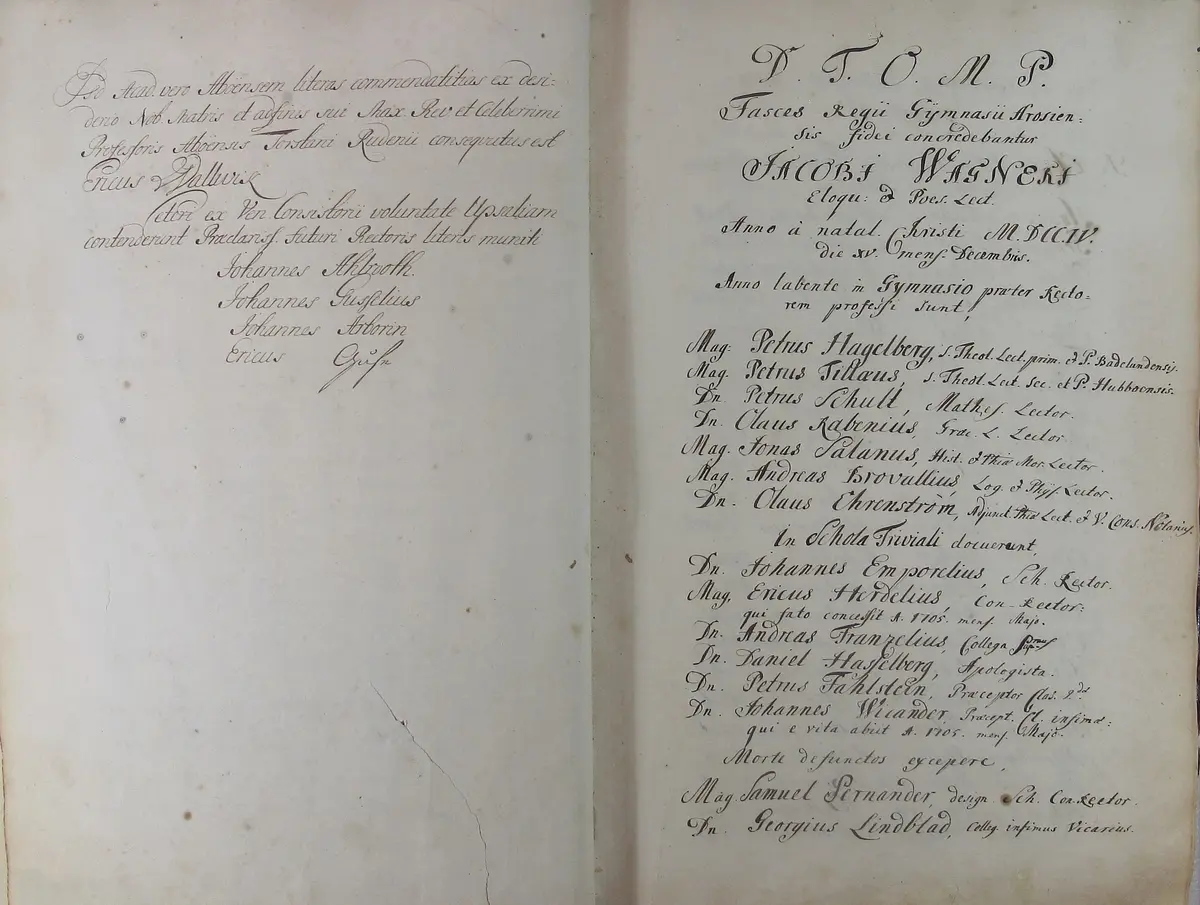 Ad Acad. vero Aboënsem literas commendatitias ex desi-
derio Nob. Matris et adfinis sui Max. Rev et Celeberrimi
Professoris Aboënsis Torstani Rudenii consequutus est
Ericus Wallwik
Cetori ex Ven Consistorii voluntate Upsaliam
contenderunt Præclariss. futuri Rectoris literis muniti
Johannes Ahlspoth.
Johannes Gusselius
Johannes Arborin
Ericus
D. T. O. M. P.
Fasces Regii Gymnasii Arosien:
sis fidei concredebantur
JACOBI WAGNERI
Eloqu: & Poes. Lect.
Anno à natal. Christi M.DCC.IV.
die XV. mens. Decembris.
Anno labente in Gymnasio præter Recto=
rem professi sunt,
Mag: Petrus Hagelberg, S. Theol. Lect. prim. & P. Badelundensis.
Mag. Petrus Tillæus, S. Theol. Lect. Sec. et P. Hubboensis.
Dn. Petrus Schult, Mathes. Lector.
Dn. Claus Rabenius, Græc. L. Lector.
Mag. Jonas Salanus, Hist. & Phiæ Mor. Lector.
Mag. Andreas Brovallius, Log. & Phys. Lector.
Dn. Claus Ehrenström, Adjunct. Phiæ Lect. & V. Cons. Notarius.
In Schola Triviali docuerunt,
Dn. Johannes Emporelius, Sch. Rector.
Mag. Ericus Herdelius, Con-Rector:
qui fato concessit A. 1705. mens. Majo.
Dn. Andreas Franzelius, Collega
Dn. Daniel Hasselberg, Apologista.
Dn. Petrus Fahlstein, Præceptor Clas. 2dæ
Dn. Johannes Wicander, Præcept. Cl. infimæ:
qui e vita abiit A. 1705. mens. Majo.
Morte defunctos excepere,
Mag. Samuel Pernander, design. Sch. Con-Rector.
Dn. Georgius Lindblad, Colleg. infimus Vicarius.